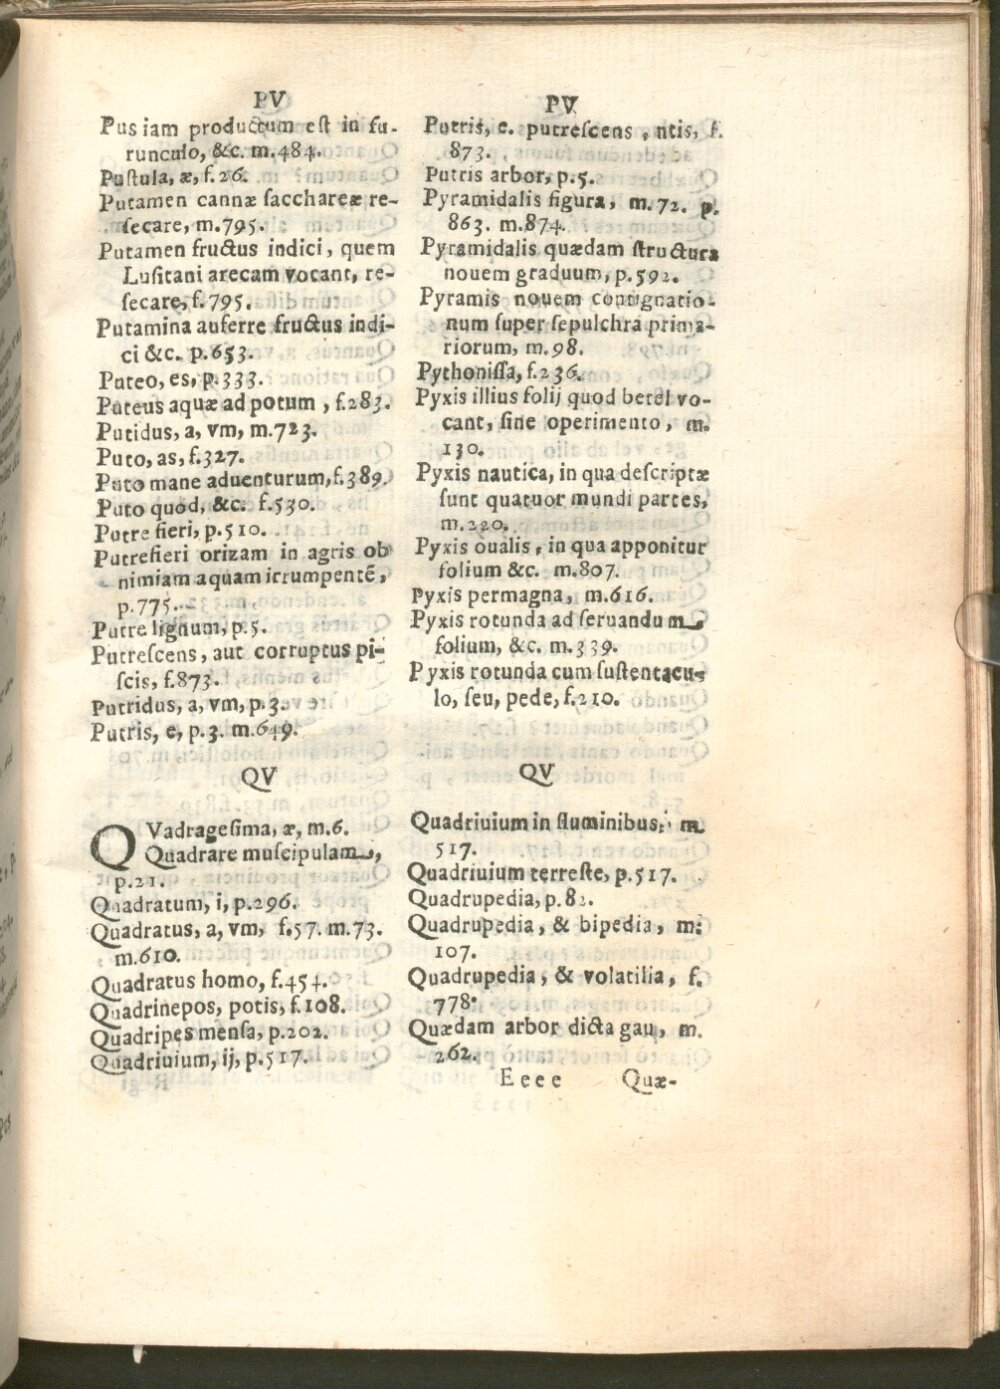 PV
Pus iam productum est in fu-
runculo, &c. m.484.
Pustula, æ, f.26.
Putamen cannæ sacchareæ re-
secare, m.795.
Putamen fructus indici, quem
Lusitani arecam vocant, re-
secare, f.795.
Putamina auferre fructus indi-
ci &c. p.653.
Puteo, es, p.333.
Puteus aquæ ad potum, f.283.
Putidus, a, vm, m.723.
Puto, as, f.327.
Puto mane aduenturum, f.389.
Puto quod, &c. f.530.
Putre fieri, p.510.
Putrefieri orizam in agris ob
nimiam aquam irrumpentē,
p.775.
Putre lignum, p.5.
Putrescens, aut corruptus pi-
scis, f.873.
Putridus, a, vm, p.3.
Putris, e, p.3. m.649.
QV
QVadragesima, æ, m.6.
Quadrare muscipulam,
p.21.
Quadratum, i, p.296.
Quadratus, a, vm, f.57. m.73.
m.610.
Quadratus homo, f.454.
Quadrinepos, potis, f.108.
Quadripes mensa, p.202.
Quadriuium, ij, p.517.
PV
Putris, e. putrescens, ntis, f.
873.
Putris arbor, p.5.
Pyramidalis figura, m.72. p.
863. m.874.
Pyramidalis quædam structura
nouem graduum, p.592.
Pyramis nouem contignatio-
num super sepulchra prima-
riorum, m.98.
Pythonissa, f.236.
Pyxis illius folij quod betel vo-
cant, sine operimento, m.
130.
Pyxis nautica, in qua descriptæ
sunt quatuor mundi partes,
m.220.
Pyxis oualis, in qua apponitur
folium &c. m.807.
Pyxis permagna, m.616.
Pyxis rotunda ad seruandum
folium, &c. m.339.
Pyxis rotunda cum sustentacu-
lo, seu, pede, f.210.
QV
Quadriuium in fluminibus, m.
517.
Quadriuium terreste, p.517.
Quadrupedia, p.82.
Quadrupedia, & bipedia, m.
107.
Quadrupedia, & volatilia, f.
778.
Quædam arbor dicta gau, m.
262.
Eeee Quæ-